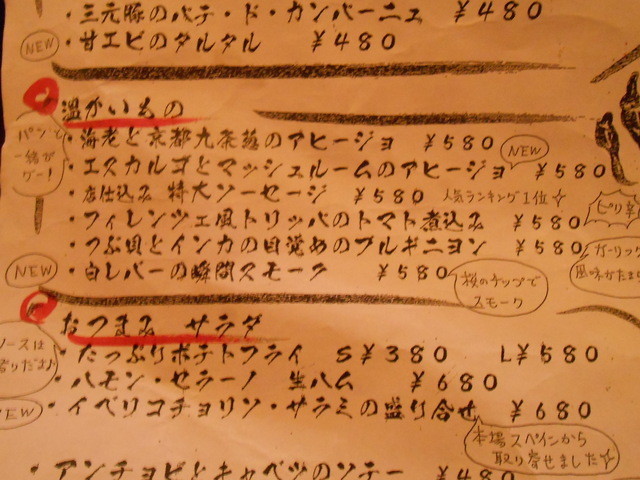 ・三元豚のパテ・ド・カンパーニュ ¥480
NEW
・甘エビのタルタル ¥480
温かいもの
パンと
一緒が
グー!
・海老と京都九条葱のアヒージョ ¥580
NEW
・エスカルゴとマッシュルームのアヒージョ ¥580
・店仕込み 特大ソーセージ ¥580 人気ランキング1位☆
・フィレンツェ風トリッパのトマト煮込み ¥580
ピリ辛
・つぶ貝とインカの目覚めのブルギニヨン ¥580
ガーリック
風味がたまら
NEW
・白レバーの瞬間スモーク ¥580
桜のチップで
スモーク
おつまみ サラダ
ソースは
・たっぷりポテトフライ S¥380 L¥580
・ハモン・セラーノ 生ハム ¥680
NEW
・イベリコチョリソ・サラミの盛り合せ ¥680
本場スペインから
取り寄せました☆
・アンチョビとキャベツのソテー ¥480